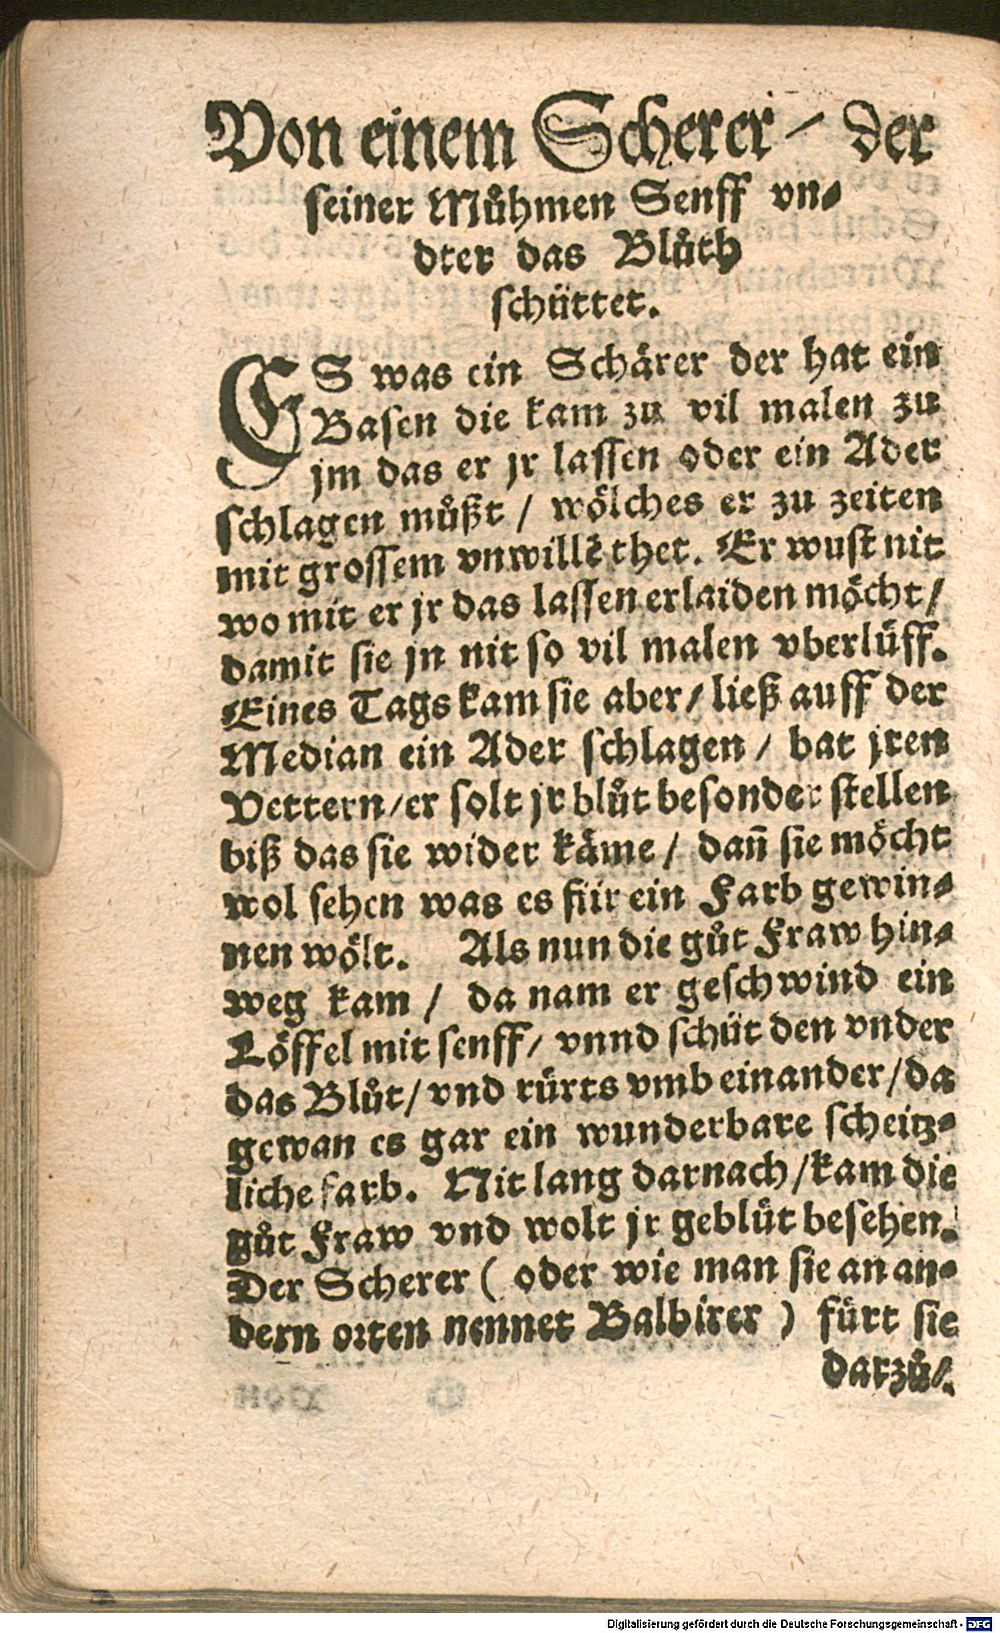 Von einem Scherer / der
seiner Můhmen Senff vn⸗
dter das Blůth
schüttet.
ES was ein Schärer der hat ein
Basen die kam zu vil malen zu
jm das er jr lassen oder ein Ader
schlagen můßt / wölches er zu zeiten
mit grossem vnwillẽ thet. Er wust nit
wo mit er jr das lassen erlaiden möcht /
damit sie jn nit so vil malen vberlüff.
Eines Tags kam sie aber / ließ auff der
Median ein Ader schlagen / bat jren
Vettern / er solt jr blůt besonder stellen
biß das sie wider käme / dañ sie möcht
wol sehen was es für ein Farb gewin⸗
nen wölt. Als nun die gůt Fraw hin⸗
weg kam / da nam er geschwind ein
Löffel mit senff / vnnd schüt den vnder
das Blůt / vnd rürts vmb einander / da
gewan es gar ein wunderbare scheitz⸗
liche farb. Nit lang darnach / kam die
gůt Fraw vnd wolt jr geblüt besehen.
Der Scherer ( oder wie man sie an an⸗
dern orten nennet Balbirer ) fürt sie
darzů /
Digitalisierung gefördert durch die Deutsche Forschungsgemeinschaft - DFG